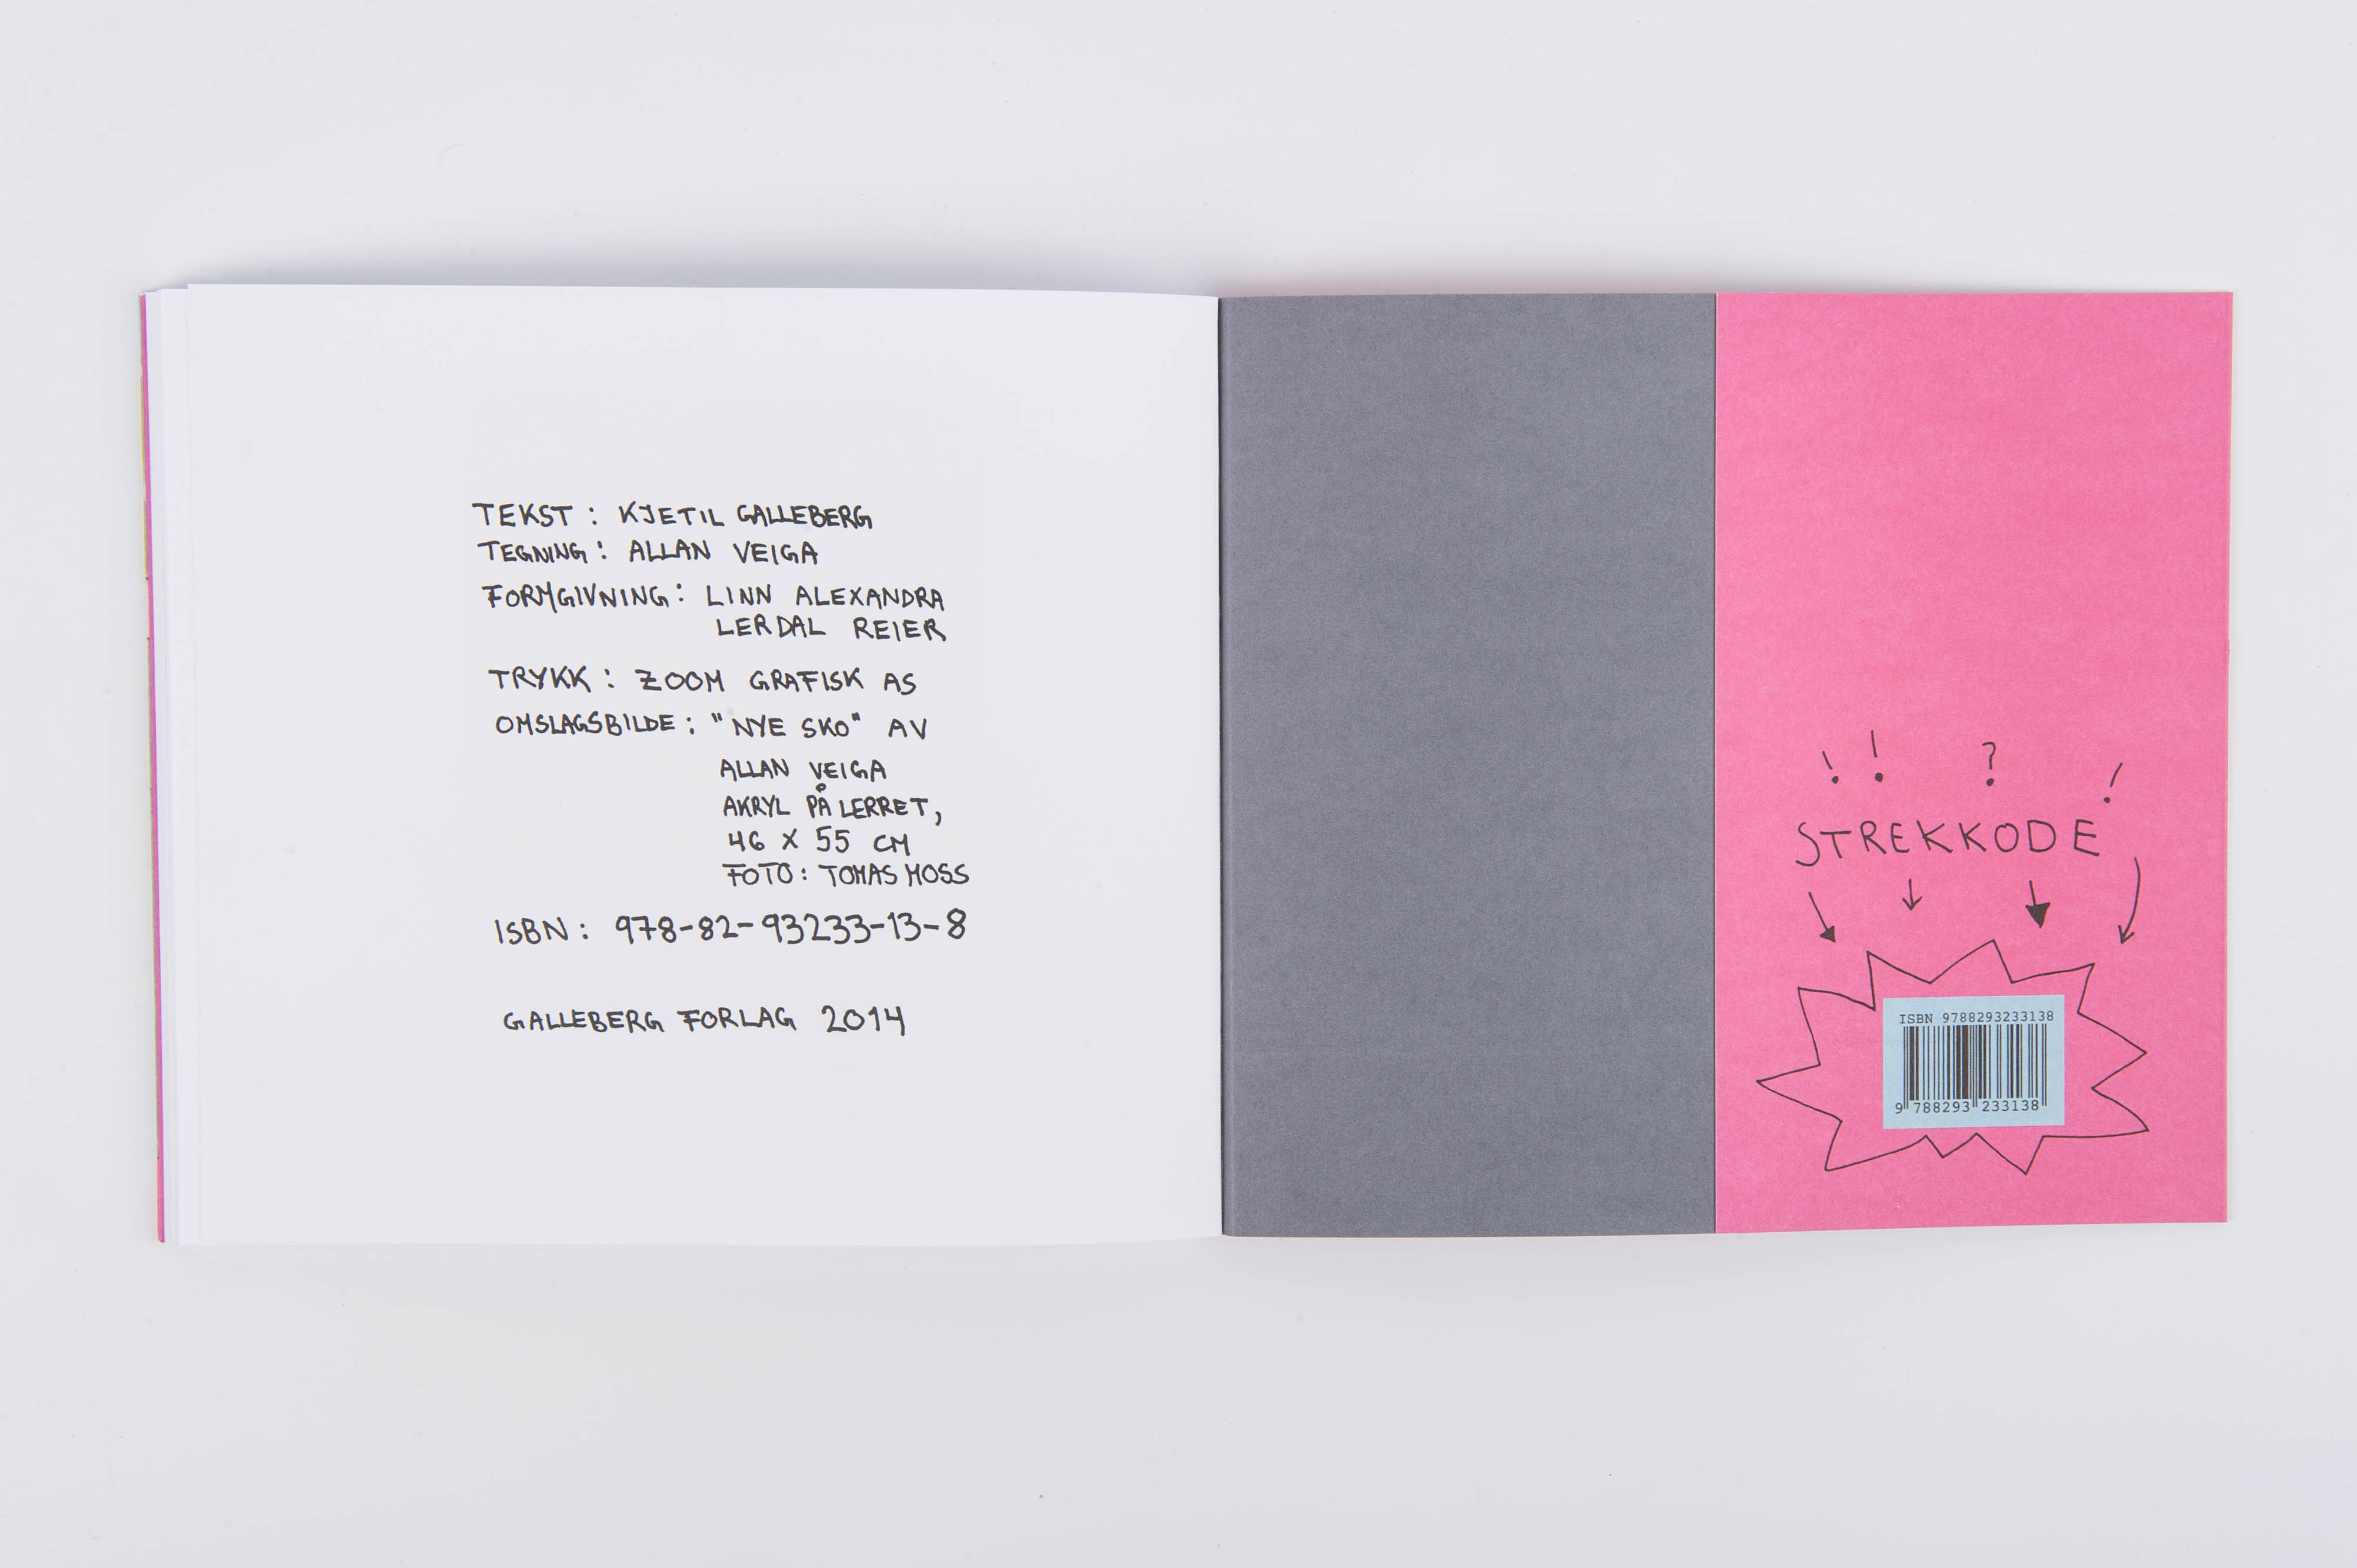 TEKST : KJETIL GALLEBERG
TEGNING : ALLAN VEIGA
FORMGIVNING : LINN ALEXANDRA
LERDAL REIER
TRYKK : ZOOM GRAFISK AS
OMSLAGSBILDE : "NYE SKO" AV
ALLAN VEIGA
AKRYL PÅ LERRET,
46 X 55 CM
FOTO : TOMAS MOSS
ISBN : 978-82-93233-13-8
GALLEBERG FORLAG 2014
! ! ? !
STREKKODE
ISBN 9788293233138
9 788293 233138